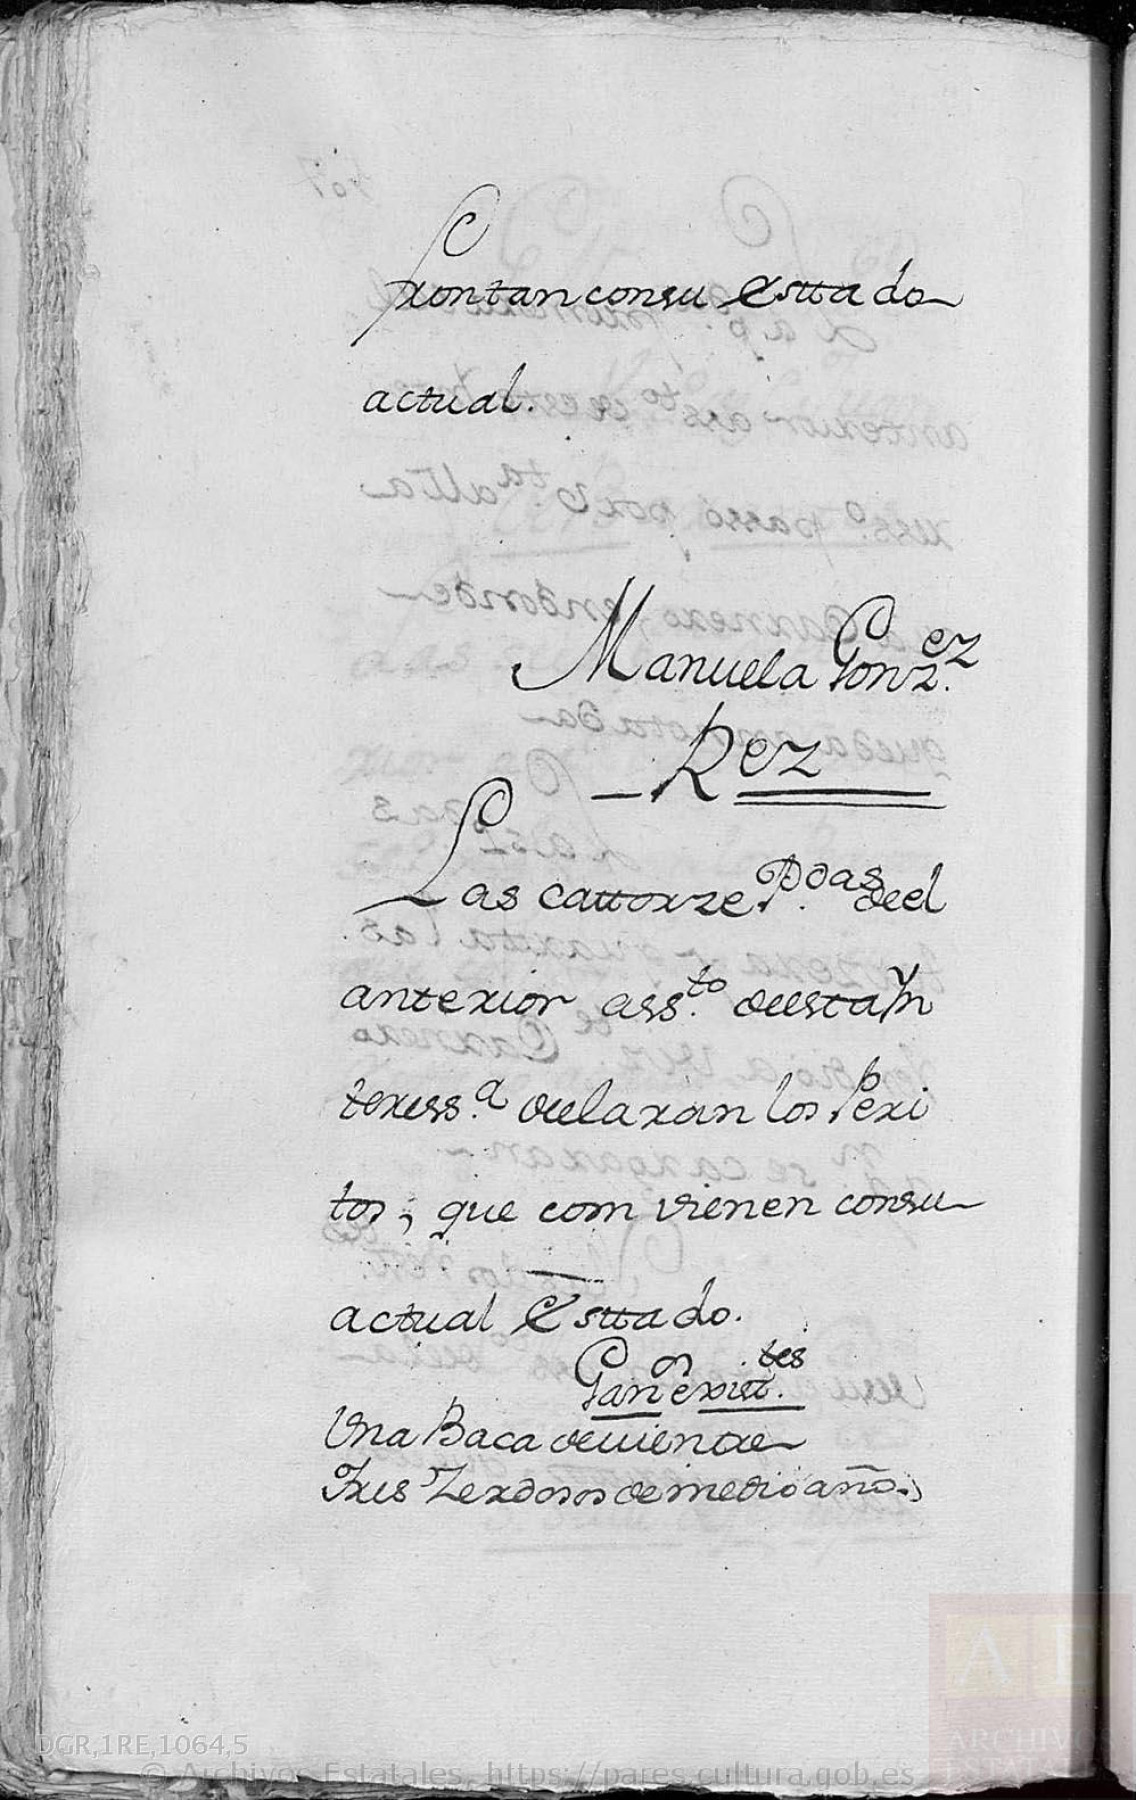 frontan consu esttado
actual.
Manuela Gonz.ez
Rez
Las cattorze P.das deel
anterior ass.to deesta Yn
teress.a declaran los Peri
tos, que com vienen consu
actual Esttado.
Gan.os exist.tes
Una Baca de vientre
tres Zerdosos de medio año.
DGR,1RE,1064,5
© Archivos Estatales, https://pares.cultura.gob.es
AE
ARCHIVOS
ESTATALES